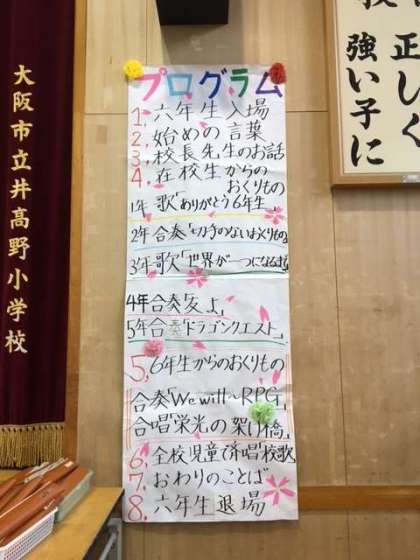 大阪市立井高野小学校
正しく
強い子に
プログラム
1, 六年生入場
2, 始めの言葉
3, 校長先生のお話
4, 在校生からの
おくりもの
1年 歌「ありがとう6年生」
2年 合奏「切手のないおくりもの」
3年 歌「世界が一つになるまで」
4年合奏「友よ」
5年合奏「ドラゴンクエスト」
5, 6年生からのおくりもの
合奏「We will~RPG」
合唱「栄光の架け橋」
6, 全校児童で斉唱「校歌」
7, おわりのことば
8, 六年生退場